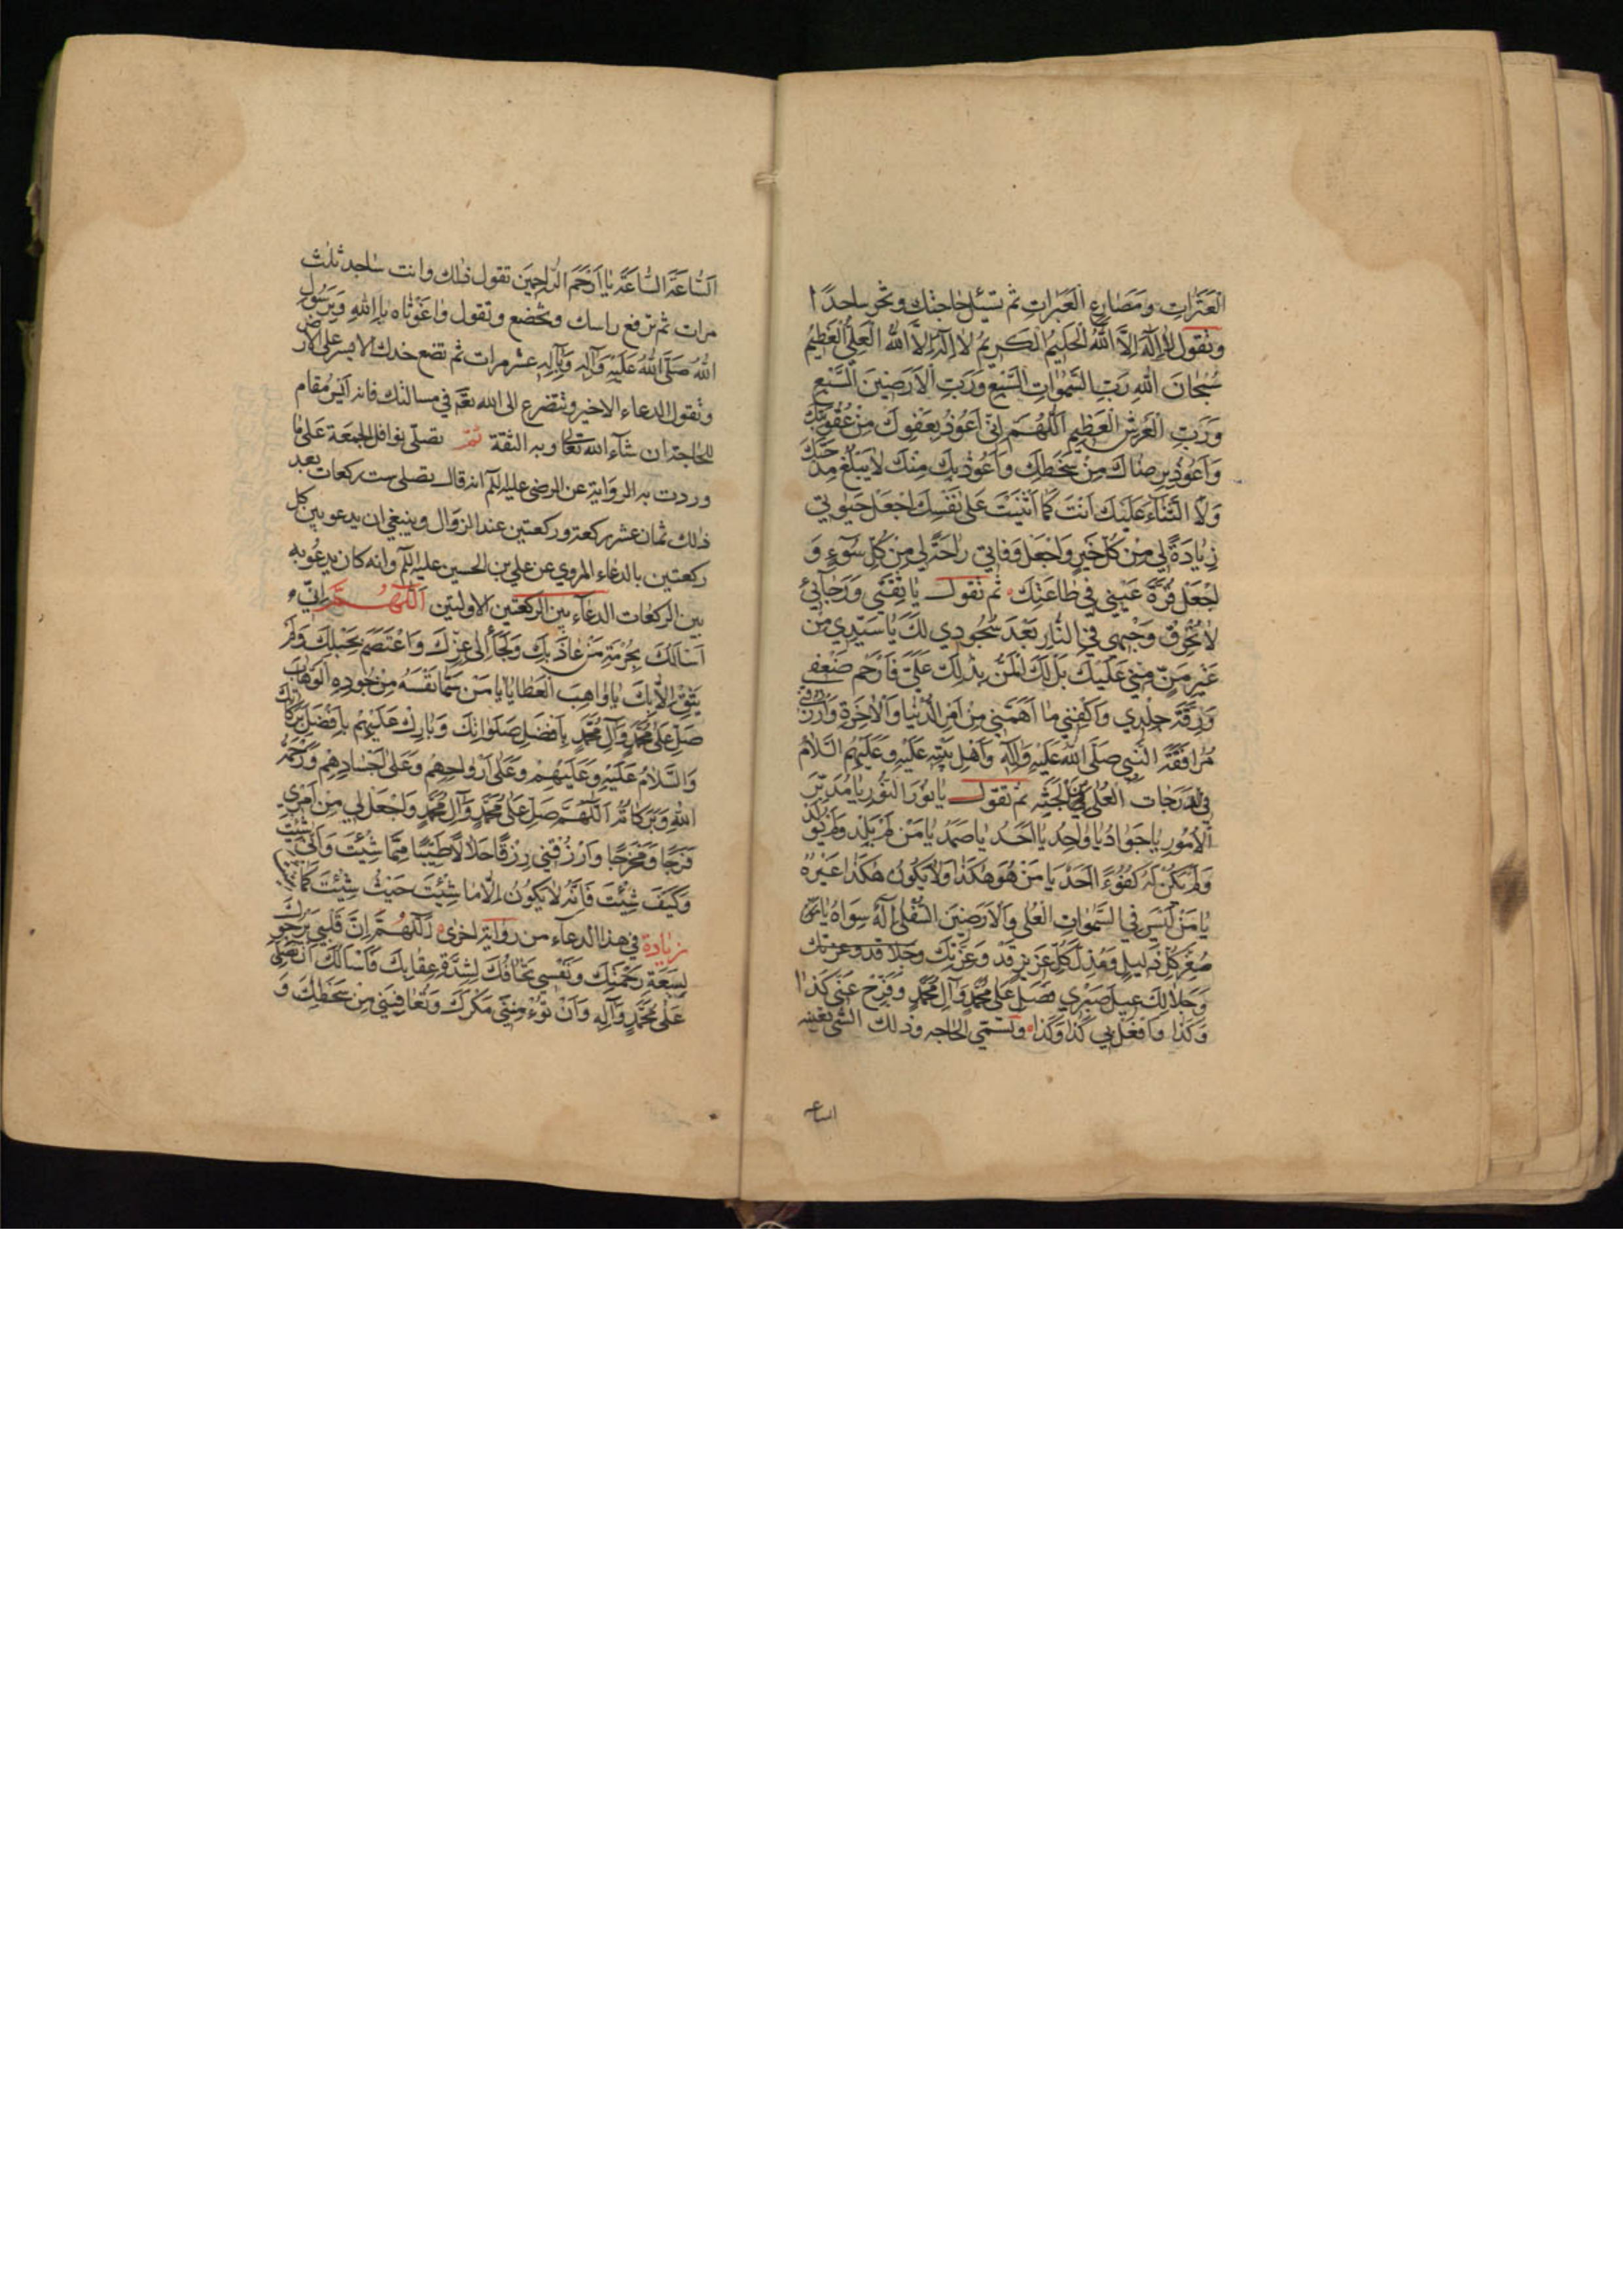 الْعَثَراتِ وَمَصارِعِ الْعَبَراتِ ثم تسئل حاجتك وتخر ساجدًا
وتقول لا اِلهَ اِلَّا اللهُ الْحَليمُ الْكَريمُ لا اِلهَ اِلَّا اللهُ الْعَلِيُّ الْعَظيمُ
سُبْحانَ اللهِ رَبِّ السَّمواتِ السَّبْعِ وَرَبِّ الْاَرَضينَ السَّبْعِ
وَرَبِّ الْعَرْشِ الْعَظيمِ اَللّهُمَّ اِنّي اَعُوذُ بِعَفْوِكَ مِنْ عُقُوبَتِكَ
وَاَعُوذُ بِرِضاكَ مِنْ سَخَطِكَ وَاَعُوذُ بِكَ مِنْكَ لا يَبْلُغُ مِدْحَتَكَ
وَلَا الثَّناءَ عَلَيْكَ اَنْتَ كَما اَثْنَيْتَ عَلى نَفْسِكَ اجْعَلْ حَيوتي
زِيادَةً لي مِنْ كُلِّ خَيْرٍ وَاجْعَلْ وَفاتي راحَةً لي مِنْ كُلِّ سُوءٍ وَ
اجْعَلْ قُرَّةَ عَيْني في طاعَتِكَ ثم تقول يا ثِقَتي وَرَجائي
لا تُحْرِقْ وَجْهي فِي النّارِ بَعْدَ سُجُودي لَكَ يا سَيِّدي مِنْ
غَيْرِ مَنٍّ مِنّي عَلَيْكَ بَلْ لَكَ الْمَنُّ بِذلِكَ عَلَيَّ فَارْحَمْ ضَعْفي
وَرِقَّةَ جِلْدي وَاكْفِني ما اَهَمَّني مِنْ اَمْرِ الدُّنْيا وَالْاخِرَةِ وَارْزُقْني
مُرافَقَةَ النَّبِيِّ صَلَّى اللهُ عَلَيْهِ وَآلِهِ وَاَهْلِ بَيْتِهِ عَلَيْهِ وَعَلَيْهِمُ السَّلامُ
فِي الدَّرَجاتِ الْعُلى فِي الْجَنَّةِ ثم تقول يا نُورَ النُّورِ يا مُدَبِّرَ
الْاُمُورِ يا جَوادُ يا واحِدُ يا اَحَدُ يا صَمَدُ يا مَنْ لَمْ يَلِدْ وَلَمْ يُولَدْ
وَلَمْ يَكُنْ لَهُ كُفُوًا اَحَدٌ يا مَنْ هُوَ هكَذا وَلا يَكُونُ هكَذا غَيْرُهُ
يا مَنْ لَيْسَ فِي السَّمواتِ الْعُلى وَالْاَرَضينَ السُّفْلى اِلهٌ سِواهُ يا
كُلِّ ذَليلٍ وَمُذِلَّ كُلِّ عَزيزٍ قَدْ وَعِزَّتِكَ وَجَلا قد وعزتك
وَجَلالِكَ عيلَ صَبْري فَصَلِّ عَلى مُحَمَّدٍ وَآلِ مُحَمَّدٍ وَفَرِّجْ عَنّي كَذا
وَكَذا وَافْعَلْ بي كَذا وَكَذا وتسمي الحاجه وذلك الشئ بعينه
الساعة
اَلسّاعَةَ السّاعَةَ يا اَرْحَمَ الرّاحِمينَ تقول ذلك وانت ساجد ثلث
مرات ثم ترفع راسك وتخضع وتقول واغَوْثاهُ بِاللهِ وَبِرَسُولِ
اللهِ صَلَّى اللهُ عَلَيْهِ وَآلِهِ وَبِآلِهِ عشر مرات ثم تضع خدك الايسر على الارض
وتقول الدعاء الاخير وتتضرع الى الله تعه في مسائلك فانه ايسر مقام
للحاجة ان شآء الله تعالى وبه الثقة ثم تصلي نوافل الجمعة على ما
وردت به الرواية عن الرضى عليه السلم انه قال تصلي ست ركعات بعد
ذلك ثمان عشر ركعة وركعتين عند الزوال وينبغي ان يدعو بين كل
ركعتين بالدعاء المروي عن علي بن الحسين عليه السلم وانه كان يدعو به
بين الركعات الدعآء بين الركعتين الاولتين اَللّهُمَّ اِنّي
اَسْاَلُكَ بِحُرْمَةِ مَنْ عاذَ بِكَ وَلَجَأَ اِلى عِزِّكَ وَاعْتَصَمَ بِحَبْلِكَ وَلَمْ
يَثِقْ اِلّا بِكَ يا واهِبَ الْعَطايا يا مَنْ سَمّا نَفْسَهُ مِنْ جُودِهِ الْوَهّابَ
صَلِّ عَلى مُحَمَّدٍ وَآلِ مُحَمَّدٍ بِاَفْضَلِ صَلَواتِكَ وَبارِكْ عَلَيْهِمْ بِاَفْضَلِ بَرَكاتِكَ
وَالسَّلامُ عَلَيْهِ وَعَلَيْهِمْ وَعَلى اَرْواحِهِمْ وَعَلى اَجْسادِهِمْ وَرَحْمَةُ
اللهِ وَبَرَكاتُهُ اَللّهُمَّ صَلِّ عَلى مُحَمَّدٍ وَآلِ مُحَمَّدٍ وَاجْعَلْ لي مِنْ اَمْري
فَرَجًا وَمَخْرَجًا وَارْزُقْني رِزْقًا حَلالًا طَيِّبًا مِمّا شِئْتَ وَاَنّى شِئْتَ
وَكَيْفَ شِئْتَ فَاِنَّهُ لا يَكُونُ اِلّا ما شِئْتَ حَيْثُ شِئْتَ كَما
زيادة في هذا الدعآء من رواية اخرى اَللّهُمَّ اِنَّ قَلْبي يَرْجُوكَ
لِسَعَةِ رَحْمَتِكَ وَنَفْسي تَخافُكَ لِشِدَّةِ عِقابِكَ فَاَسْاَلُكَ اَنْ تُصَلِّيَ
عَلى مُحَمَّدٍ وَآلِهِ وَاَنْ تُؤْمِنَني مَكْرَكَ وَتُعافِيَني مِنْ سَخَطِكَ وَ